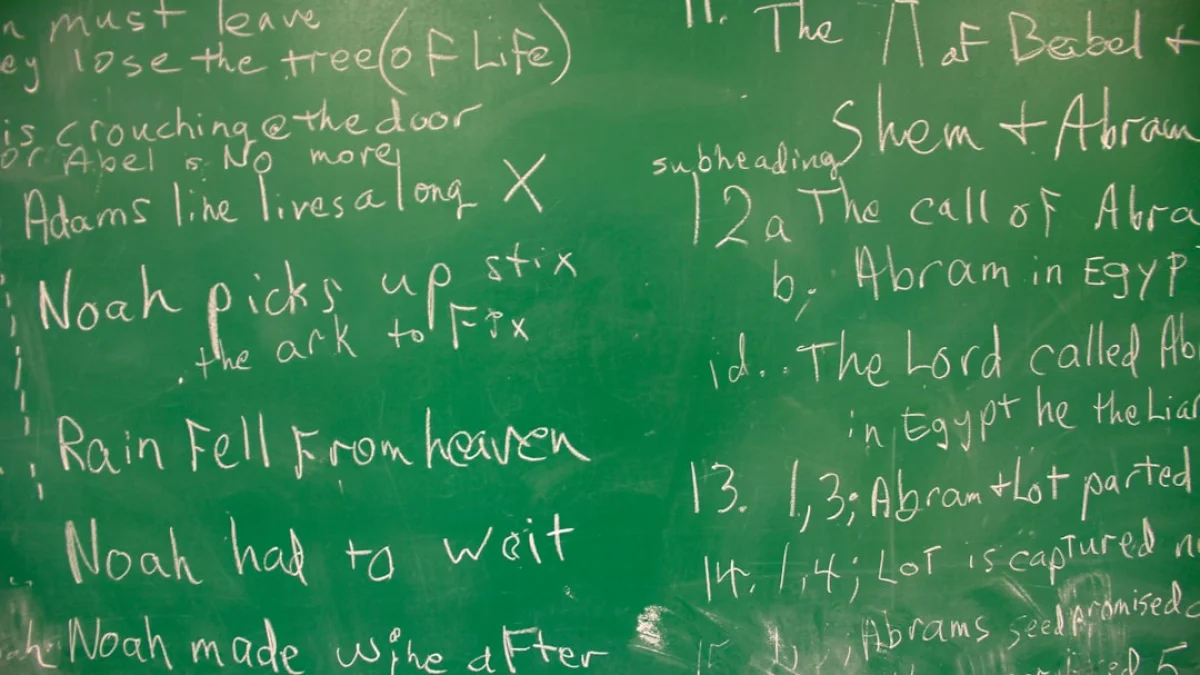 must leave
lose the tree (of Life)
is crouching @ the door
or Abel is No more
Adams line lives along X
Noah picks up stix
the ark to Fix
Rain Fell From heaven
Noah had to wait
Noah made wine after
11. The Λ of Babel +
Shem + Abram
subheading
12a The call of Abra
b. Abram in Egyp
id.. The Lord called Ab
in Egypt he the Liar
13. 1,3; Abram + Lot parted
14. 1,4; Lot is captured
15 ; Abrams seed promised
5